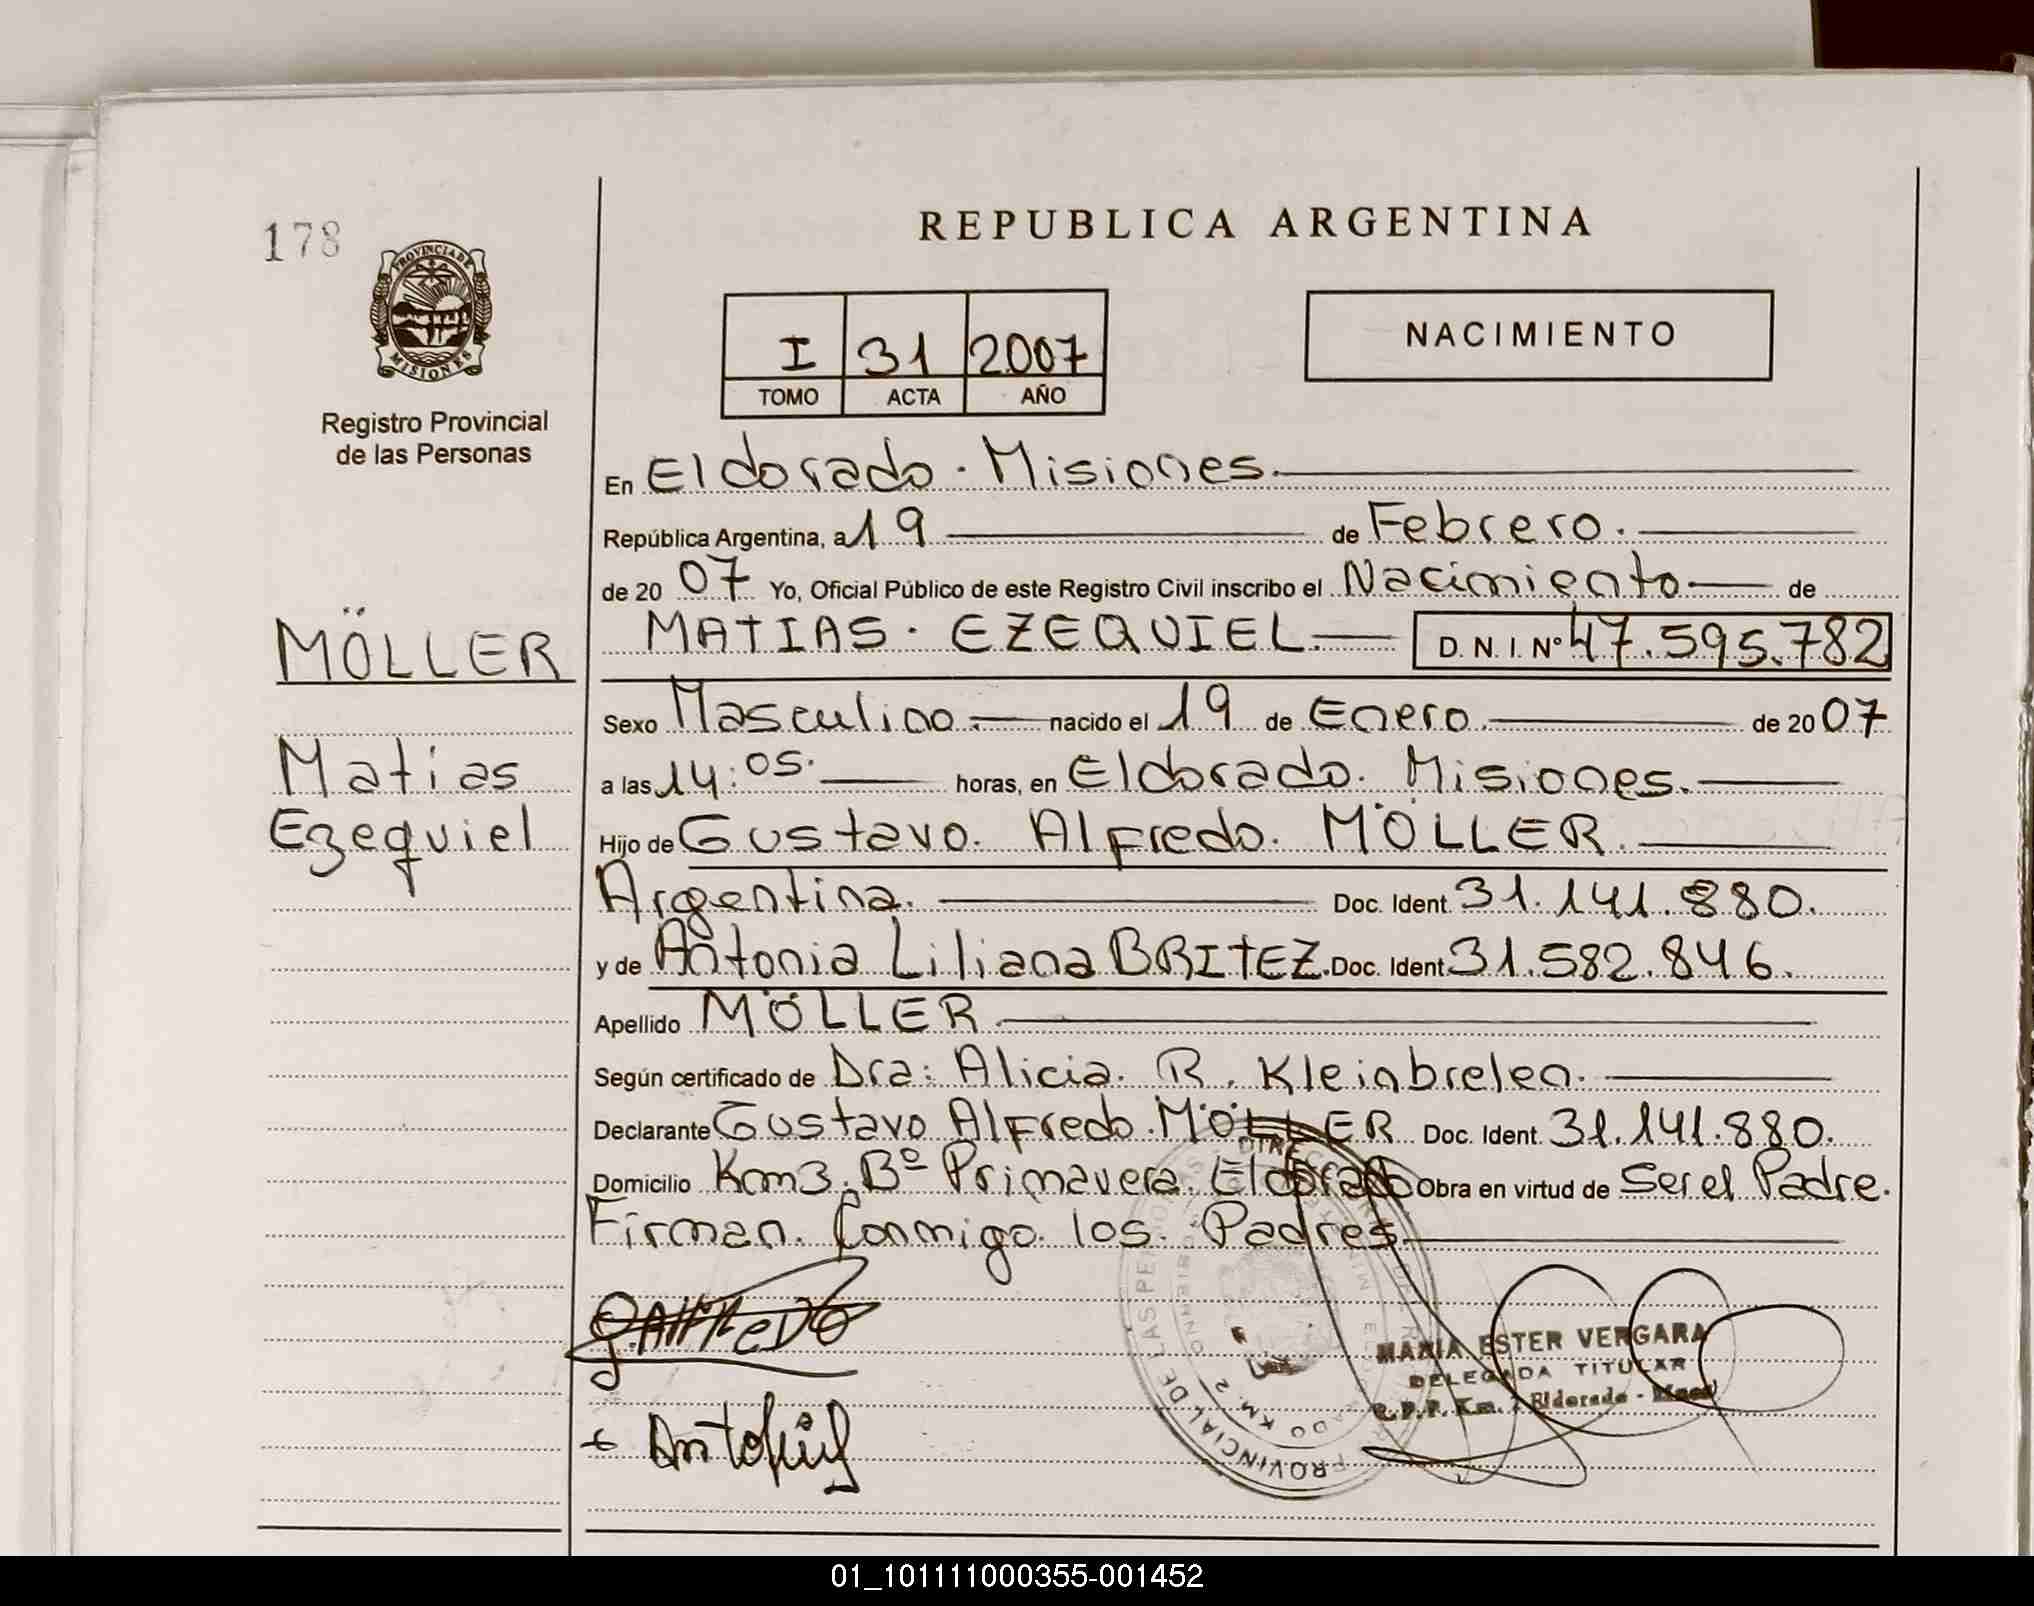 178
PROVINCIA DE
MISIONES
Registro Provincial
de las Personas
MÖLLER
Matias
Ezequiel
REPUBLICA ARGENTINA
I 31 2007
TOMO ACTA AÑO
NACIMIENTO
En Eldorado - Misiones.
República Argentina, a 19 de Febrero.
de 20 07 Yo, Oficial Público de este Registro Civil inscribo el Nacimiento de
MATIAS. EZEQUIEL. D. N. I. Nº 47.595.782
Sexo Masculino. nacido el 19 de Enero. de 20 07
a las 14:05. horas, en Eldorado. Misiones.
Hijo de Gustavo. Alfredo. MÖLLER.
Argentina. Doc. Ident. 31.141.880.
y de Antonia Liliana BRITEZ. Doc. Ident. 31.582.846.
Apellido MÖLLER.
Según certificado de Dra: Alicia. R. Kleinbrelen.
Declarante Gustavo Alfredo. MÖLLER Doc. Ident. 31.141.880.
Domicilio Km3. Bº Primavera. Eldorado Obra en virtud de Ser el Padre.
Firman. Conmigo. los. Padres.
MARIA ESTER VERGARA
DELEGADA TITULAR
R.P.P. Km. 2 Eldorado - Mnes
PROVINCIAL DE LAS PERSONAS
01_101111000355-001452